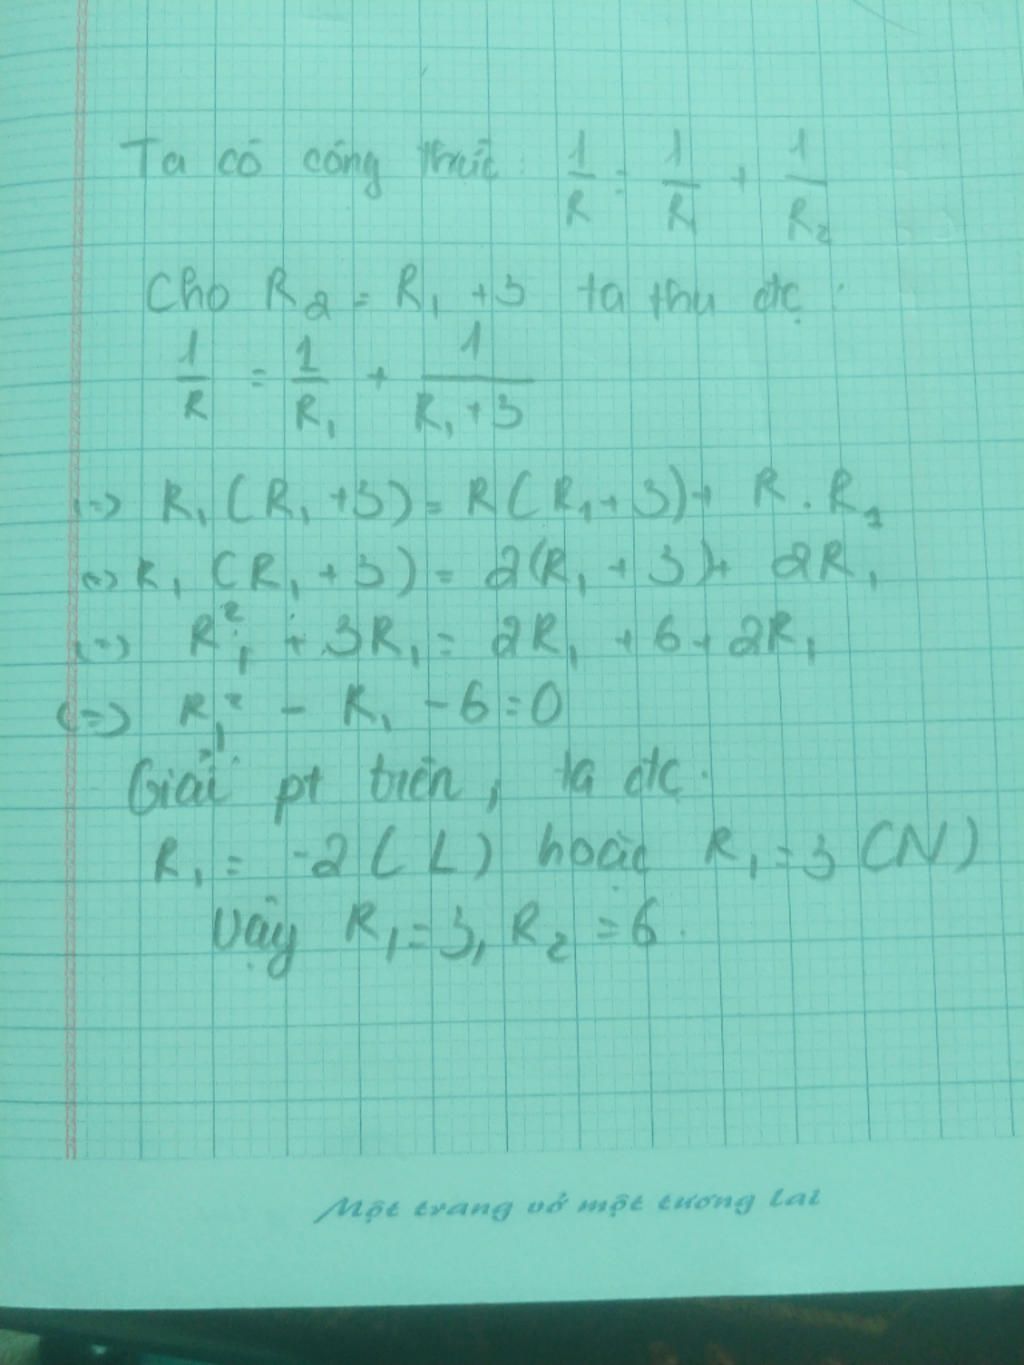 Ta có công thức: 1/R = 1/R₁ + 1/R₂
Cho R₂ = R₁ + 3 ta thu đc :
1/R = 1/R₁ + 1/(R₁ + 3)
(=) R₁ (R₁ + 3) = R(R₁ + 3) + R . R₁
(=) R₁ (R₁ + 3) = 2(R₁ + 3) + 2R₁
(=) R₁² + 3R₁ = 2R₁ + 6 + 2R₁
(=) R₁² - R₁ - 6 = 0
Giải pt trên, ta đc.
R₁ = -2 (L) hoặc R₁ = 3 (N)
Vậy R₁ = 3, R₂ = 6.
Một trang vở một tương lai